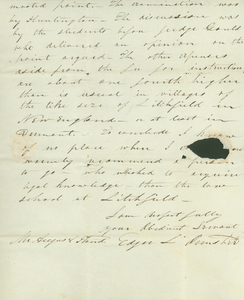 mooted point. The
by Huntington. The discussion was
by the students upon Judge Gould
who delivered an opinion on the
point argued. The other
aside from the
are about one fourth higher
than is usual in villages of
the like size of Litchfield in
New England or at least in
Vermont. To conclude I know
of no place where I
warmly recommend a person
to go who wished to acquire
legal knowledge than the law
school at Litchfield
I am respectfully
your Obedient Servant